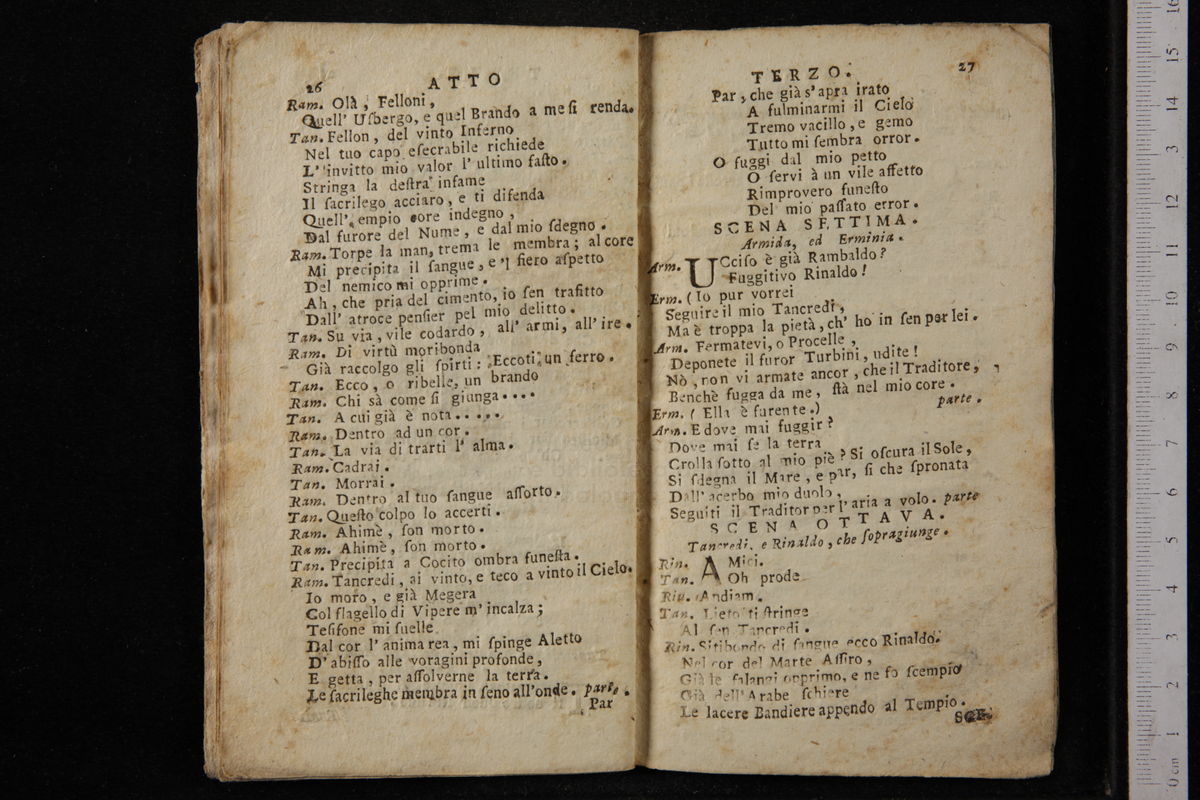 26 ATTO
Ram. Olà, Felloni,
Quell' Uſbergo, e quel Brando a me ſi renda.
Tan. Fellon, del vinto Inferno
Nel tuo capo eſecrabile richiede
L' invitto mio valor l' ultimo faſto.
Stringa la deſtra infame
Il ſacrilego acciaro, e ti difenda
Quell' empio core indegno,
Dal furore del Nume, e dal mio ſdegno.
Ram. Torpe la man, trema le membra; al core
Mi precipita il ſangue, e 'l fiero aſpetto
Del nemico mi opprime.
Ah, che pria del cimento, io ſen trafitto
Dall' atroce penſier pel mio delitto.
Tan. Su via, vile codardo, all' armi, all' ire.
Ram. Di virtù moribonda
Già raccolgo gli ſpirti: Eccoti un ferro.
Tan. Ecco, o ribelle, un brando
Ram. Chi sà come ſi giunga....
Tan. A cui già è nota.....
Ram. Dentro ad un cor.
Tan. La via di trarti l' alma.
Ram. Cadrai.
Tan. Morrai.
Ram. Dentro al tuo ſangue aſſorto.
Tan. Queſto colpo lo accerti.
Ram. Ahimè, ſon morto.
Ram. Ahimè, ſon morto.
Tan. Precipita a Cocito ombra funeſta.
Ram. Tancredi, ai vinto, e teco a vinto il Cielo.
Io moro, e già Megera
Col flagello di Vipere m' incalza;
Teſifone mi ſuelle
Dal cor l' anima rea, mi ſpinge Aletto
D' abiſſo alle voragini profonde,
E getta, per aſſolverne la terra.
Le ſacrileghe membra in ſeno all' onde. parte.
Par
TERZO. 27
Par, che già s' apra irato
A fulminarmi il Cielo
Tremo vacillo, e gemo
Tutto mi ſembra orror.
O fuggi dal mio petto
O ſervi à un vile affetto
Rimprovero funeſto
Del mio paſſato error.
SCENA SETTIMA.
Armida, ed Erminia.
Arm. UCciſo è già Rambaldo?
Fuggitivo Rinaldo!
Erm. (Io pur vorrei
Seguire il mio Tancredi,
Ma è troppa la pietà, ch' ho in ſen per lei.
Arm. Fermatevi, o Procelle,
Deponete il furor Turbini, udite!
Nò, non vi armate ancor, che il Traditore,
Benchè fugga da me, ſtà nel mio core.
Erm. (Ella è furente.) parte.
Arm. E dove mai fuggir?
Dove mai ſe la terra
Crolla ſotto al mio piè? Si oſcura il Sole,
Si ſdegna il Mare, e par, ſi che ſpronata
Dall' acerbo mio duolo,
Seguiti il Traditor per l' aria a volo. parte
SCENA OTTAVA.
Tancredi, e Rinaldo, che ſopragiunge.
Rin. AMici.
Tan. Oh prode
Rin. Andiam.
Tan. Lieto ti ſtringe
Al ſen Tancredi.
Rin. Sitibondo di ſangue ecco Rinaldo.
Nel cor del Marte Aſſiro,
Già le falangi opprimo, e ne fo ſcempio
Già dell' Arabe ſchiere
Le lacere Bandiere appendo al Tempio.
SCE.